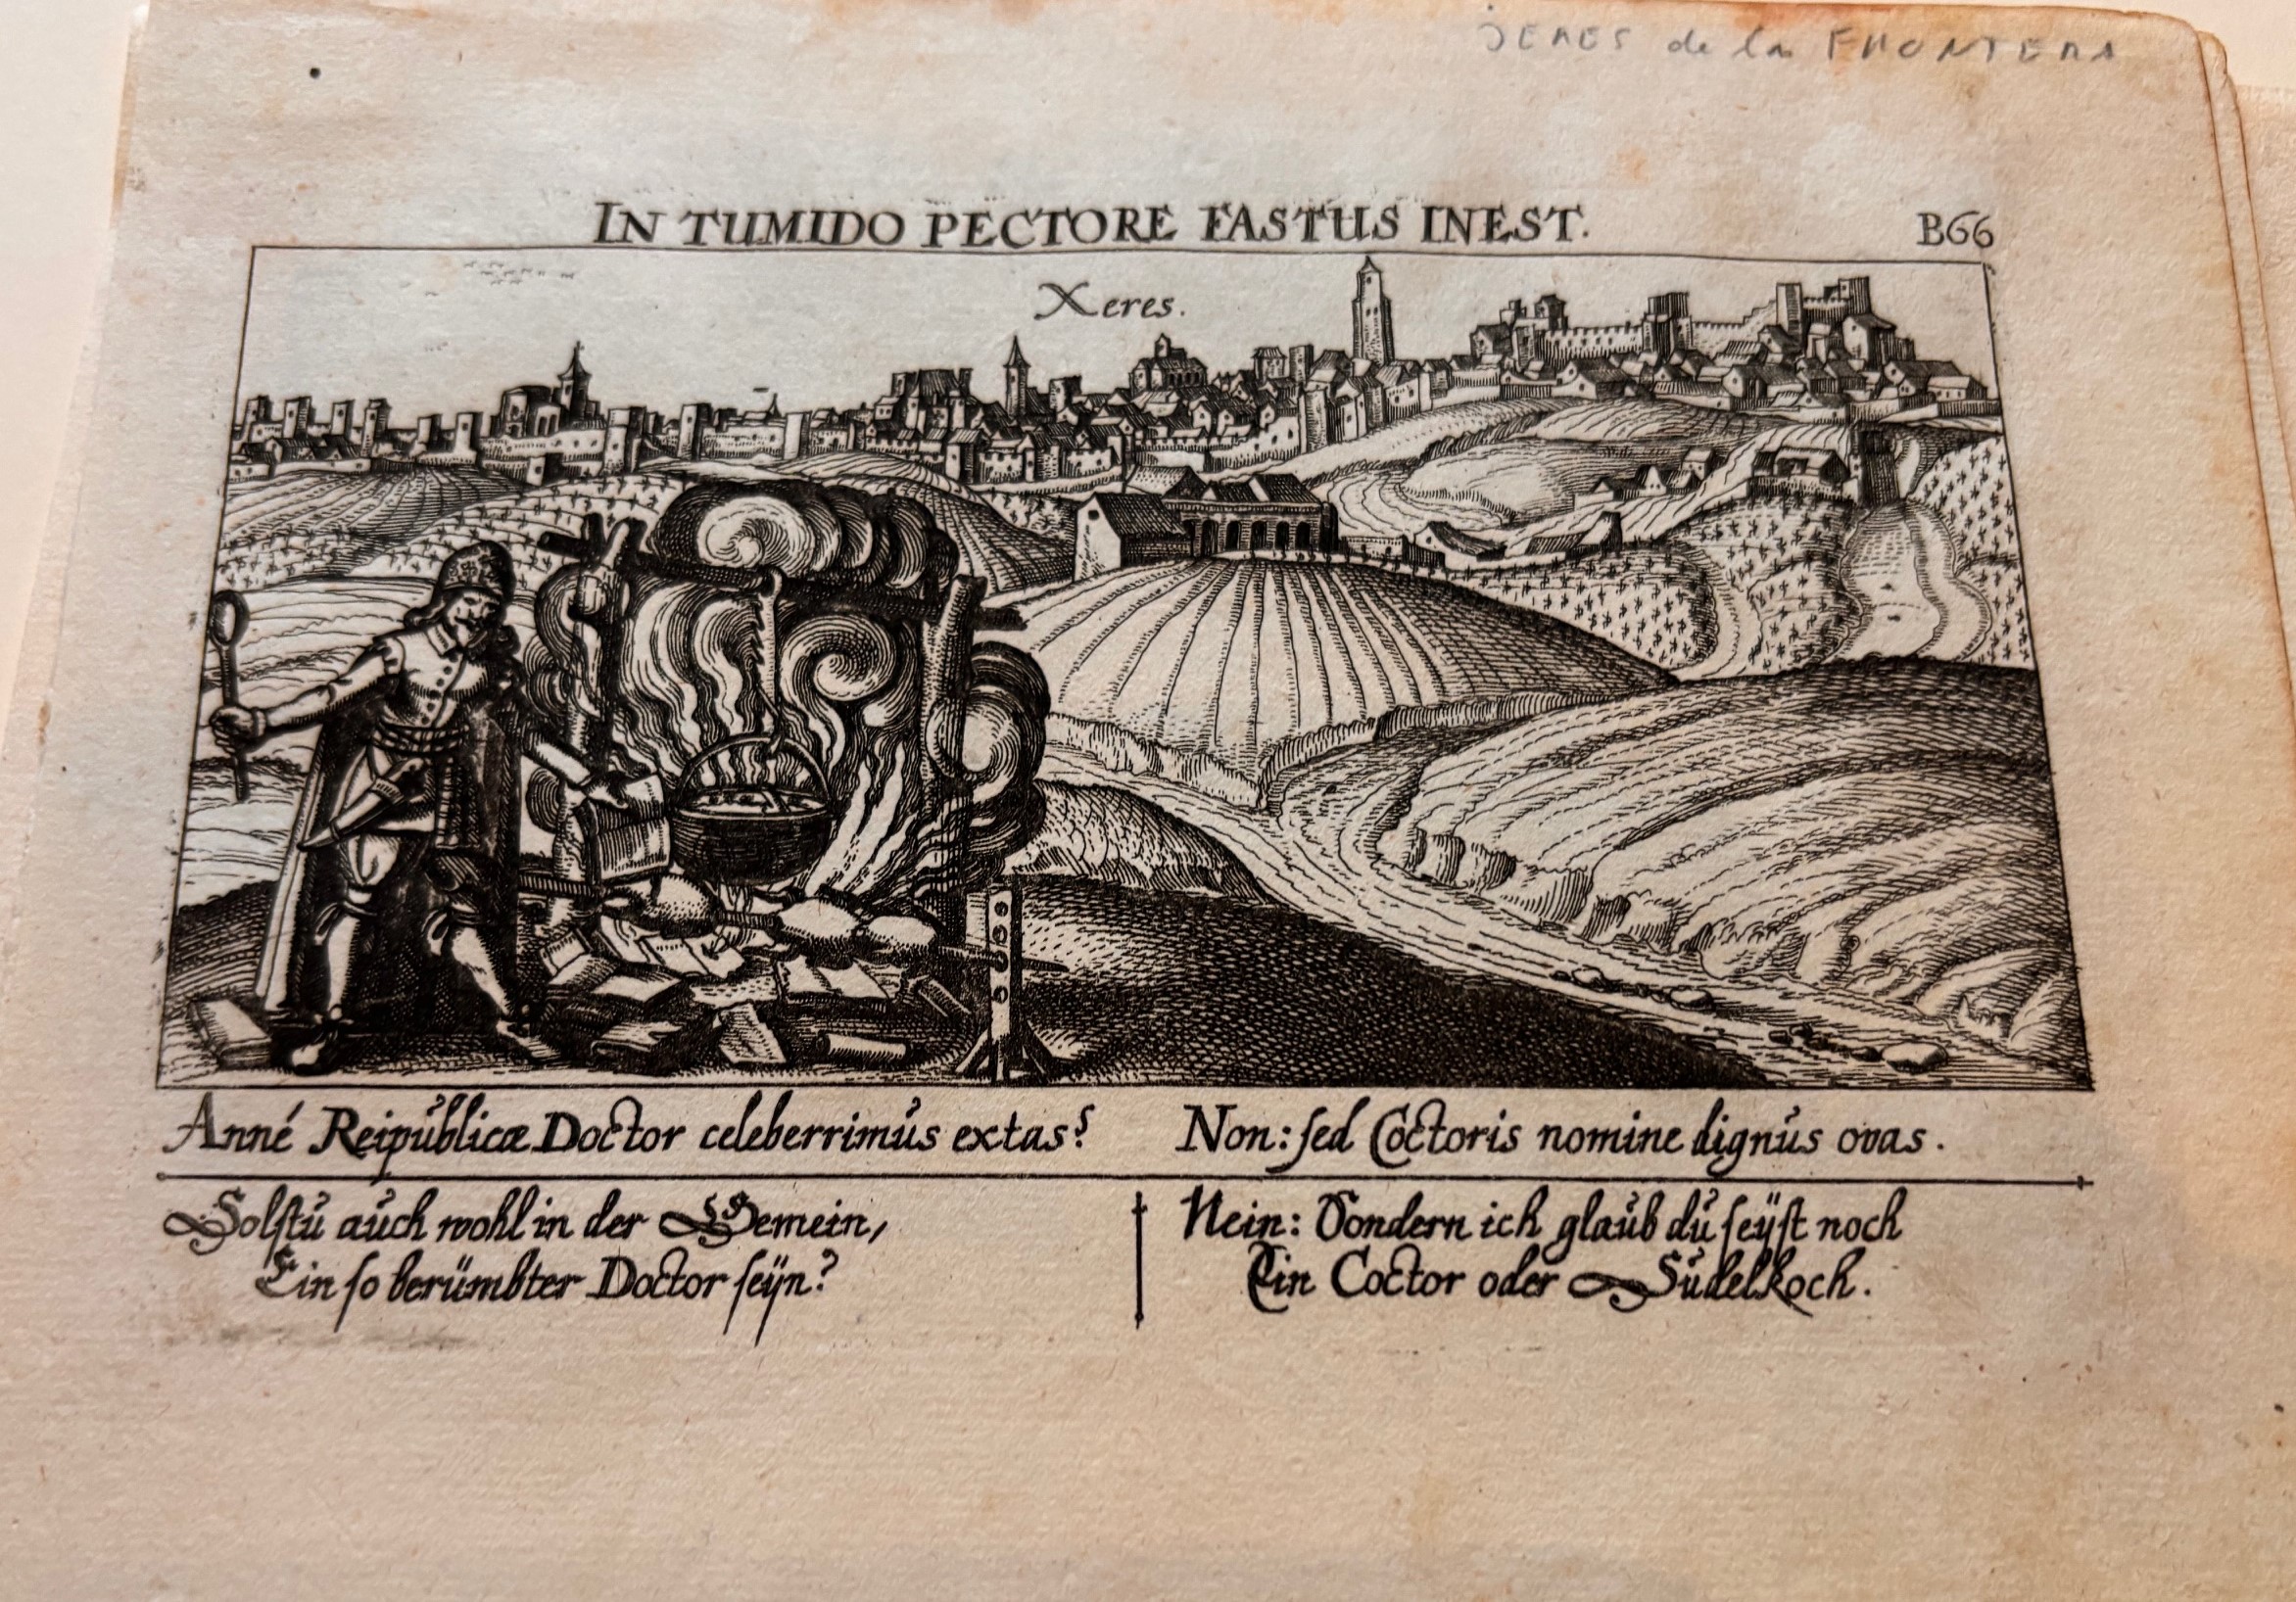 JERES de la FRONTERA
IN TUMIDO PECTORE FASTUS INEST.
B66
Xeres.
Anné Reipublicæ Doctor celeberrimus extas? Non: sed Coctoris nomine dignus ovas.
Solstu auch wohl in der Gemein,
Ein so berümbter Doctor seÿn?
Nein: Sondern ich glaub du seÿst noch
Ein Coctor oder Sudelkoch.